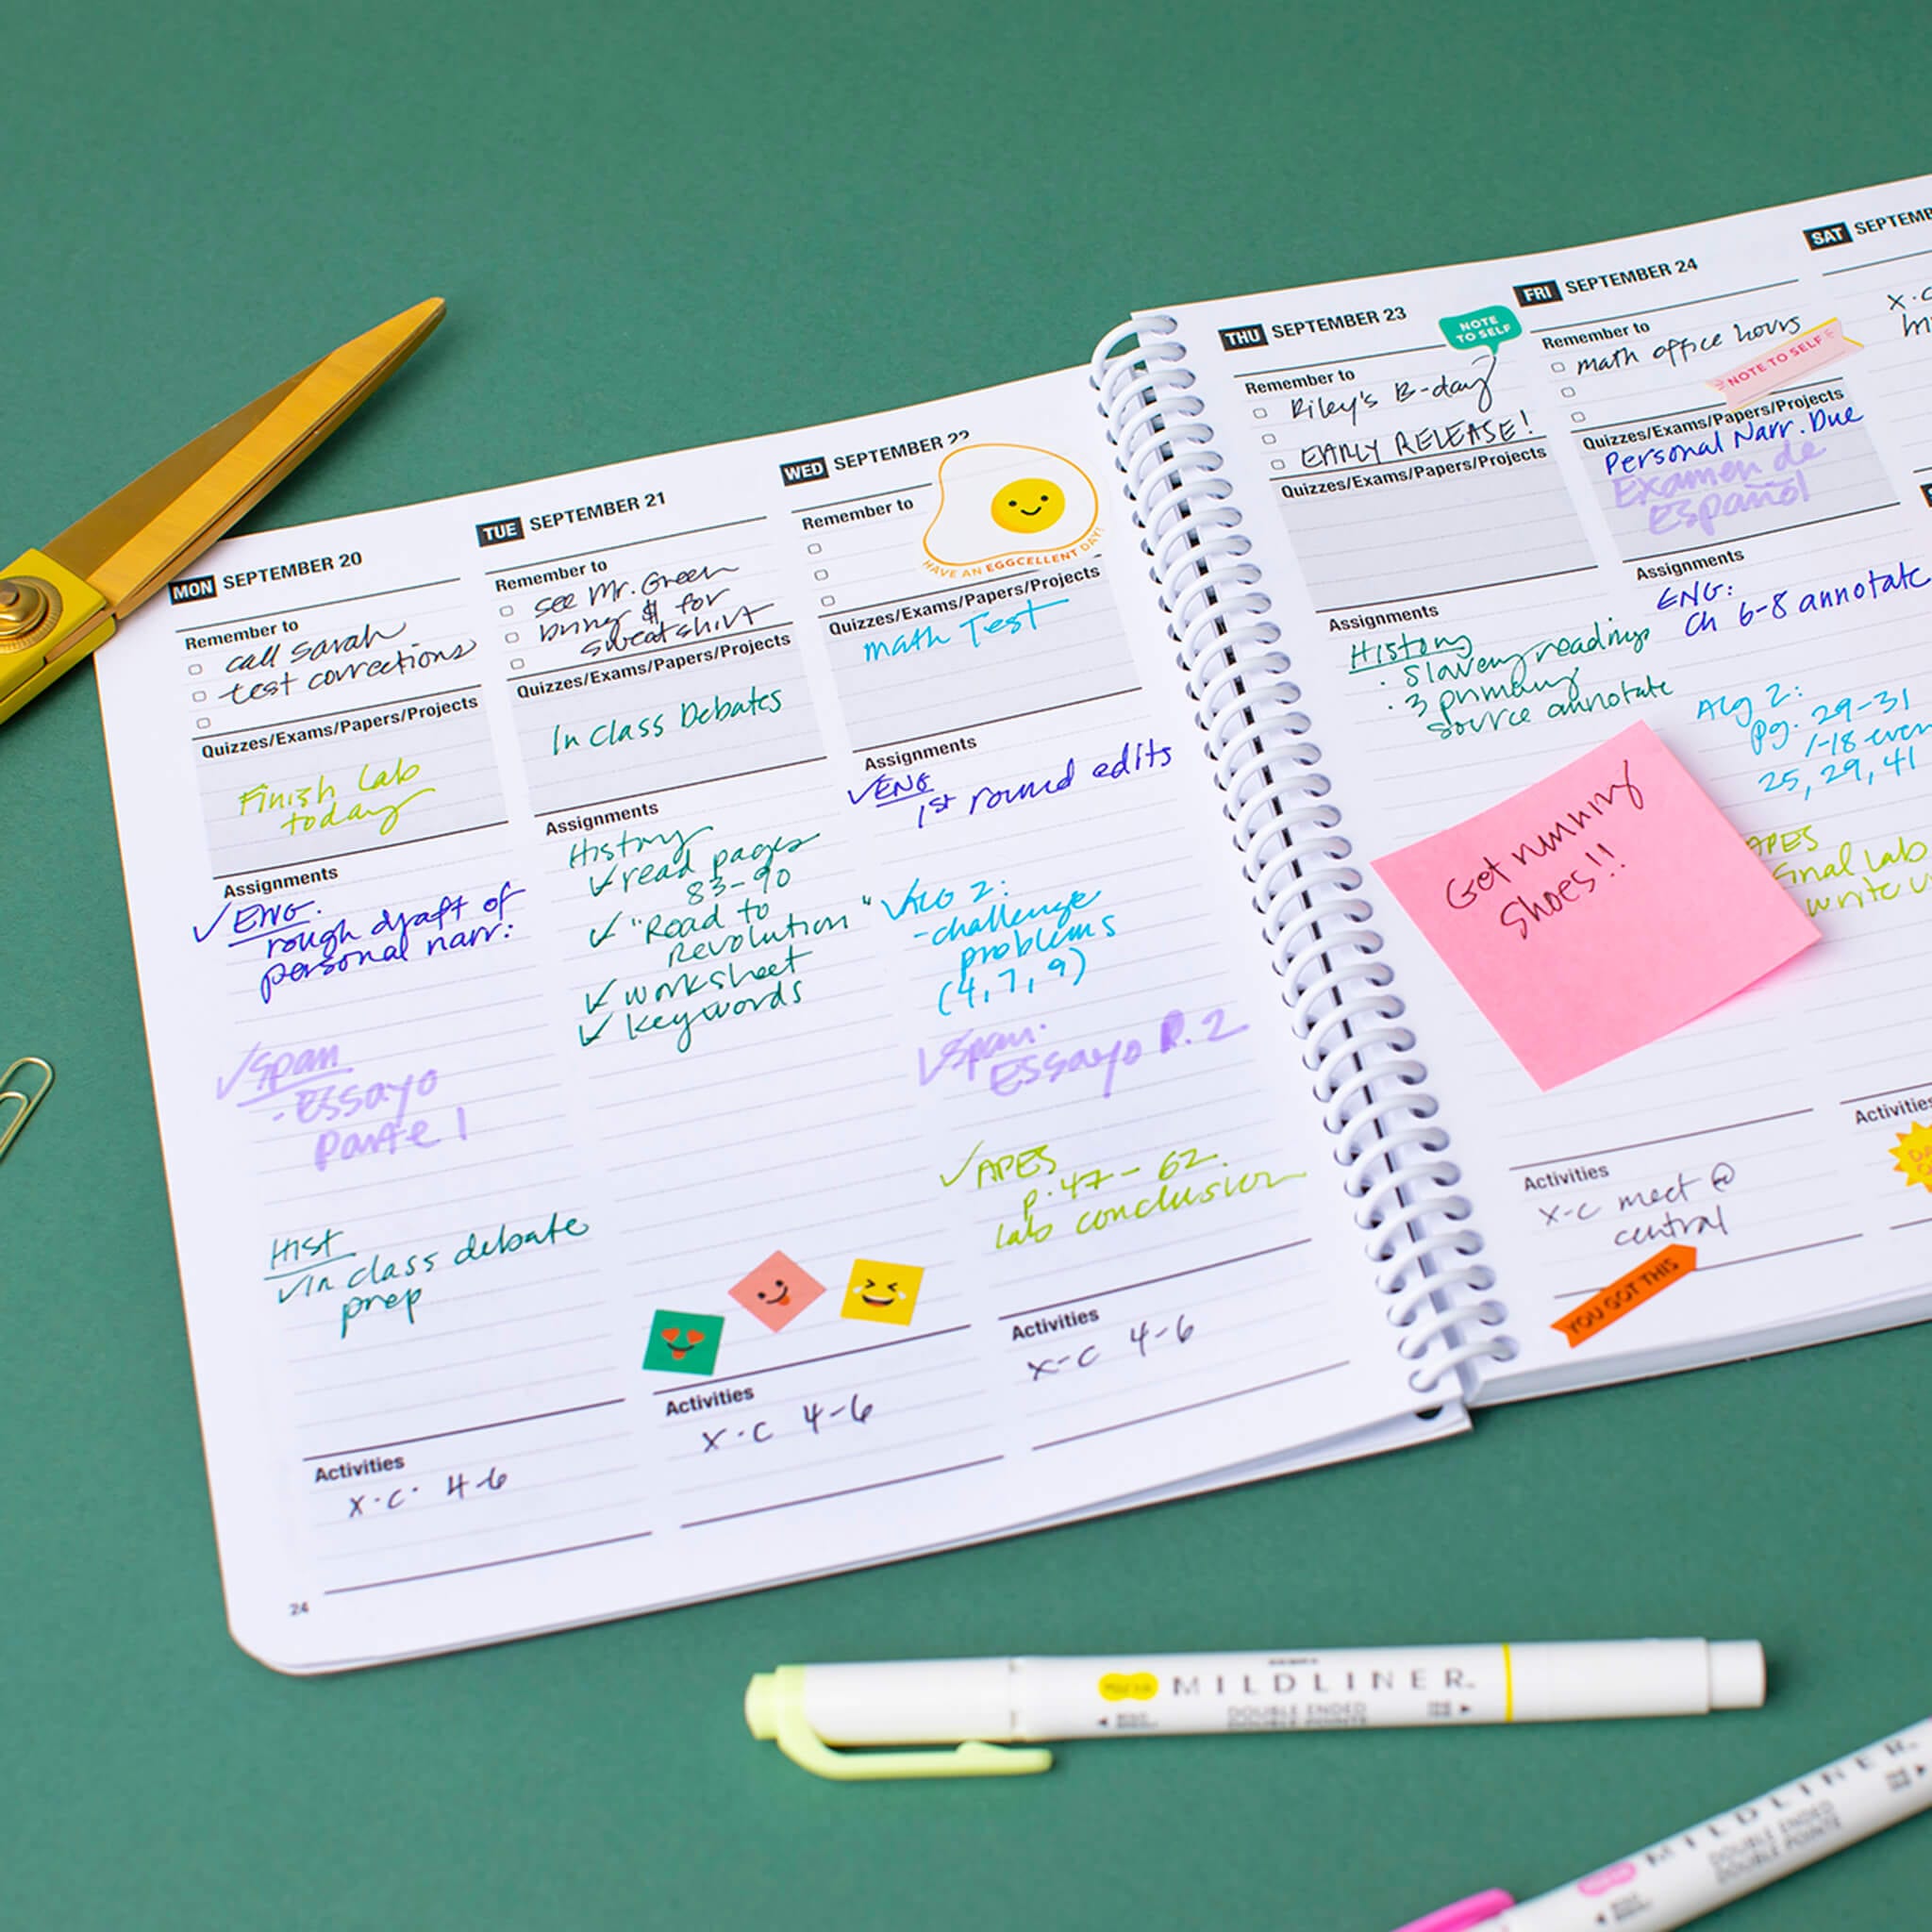 MON SEPTEMBER 20
Remember to
call sarah
test corrections
Quizzes/Exams/Papers/Projects
Finish Lab
today
Assignments
✓ ENG.
rough draft of
personal narr.
✓ Span
- Essayo
Parte 1
Hist
✓ In class debate
prep
Activities
X.C. 4-6
24
TUE SEPTEMBER 21
Remember to
see Mr. Green
bring $ for
sweatshirt
Quizzes/Exams/Papers/Projects
In Class Debates
Assignments
History
✓ read pages
83-90
✓ "Road to
Revolution"
✓ worksheet
✓ keywords
Activities
X-C 4-6
WED SEPTEMBER 22
Remember to
HAVE AN EGGCELLENT DAY!
Quizzes/Exams/Papers/Projects
math Test
Assignments
✓ ENG
1st round edits
✓ ALG 2:
- challenge
problems
(4, 7, 9)
✓ Span.
Essayo P. 2
✓ APES
p. 47-62
lab conclusion
Activities
X-C 4-6
THU SEPTEMBER 23
NOTE
TO SELF
Remember to
Riley's B-day
EARLY RELEASE!
Quizzes/Exams/Papers/Projects
Assignments
History
· Slavery readings
· 3 primary
source annotate
Get running
Shoes!!
Activities
X-C meet @
central
YOU GOT THIS
FRI SEPTEMBER 24
Remember to
math office hours
NOTE TO SELF
Quizzes/Exams/Papers/Projects
Personal Narr. Due
Examen de
Español
Assignments
ENG:
Ch 6-8 annotate
Alg 2:
pg. 29-31
1-18 even
25, 29, 41
APES
Final Lab
write
Activities
SAT SEPTEMB
X.C
MILDLINER
DOUBLE ENDED
DOUBLE POINTS
MILDLINER
DOUBLE ENDED
DOUBLE POINTS